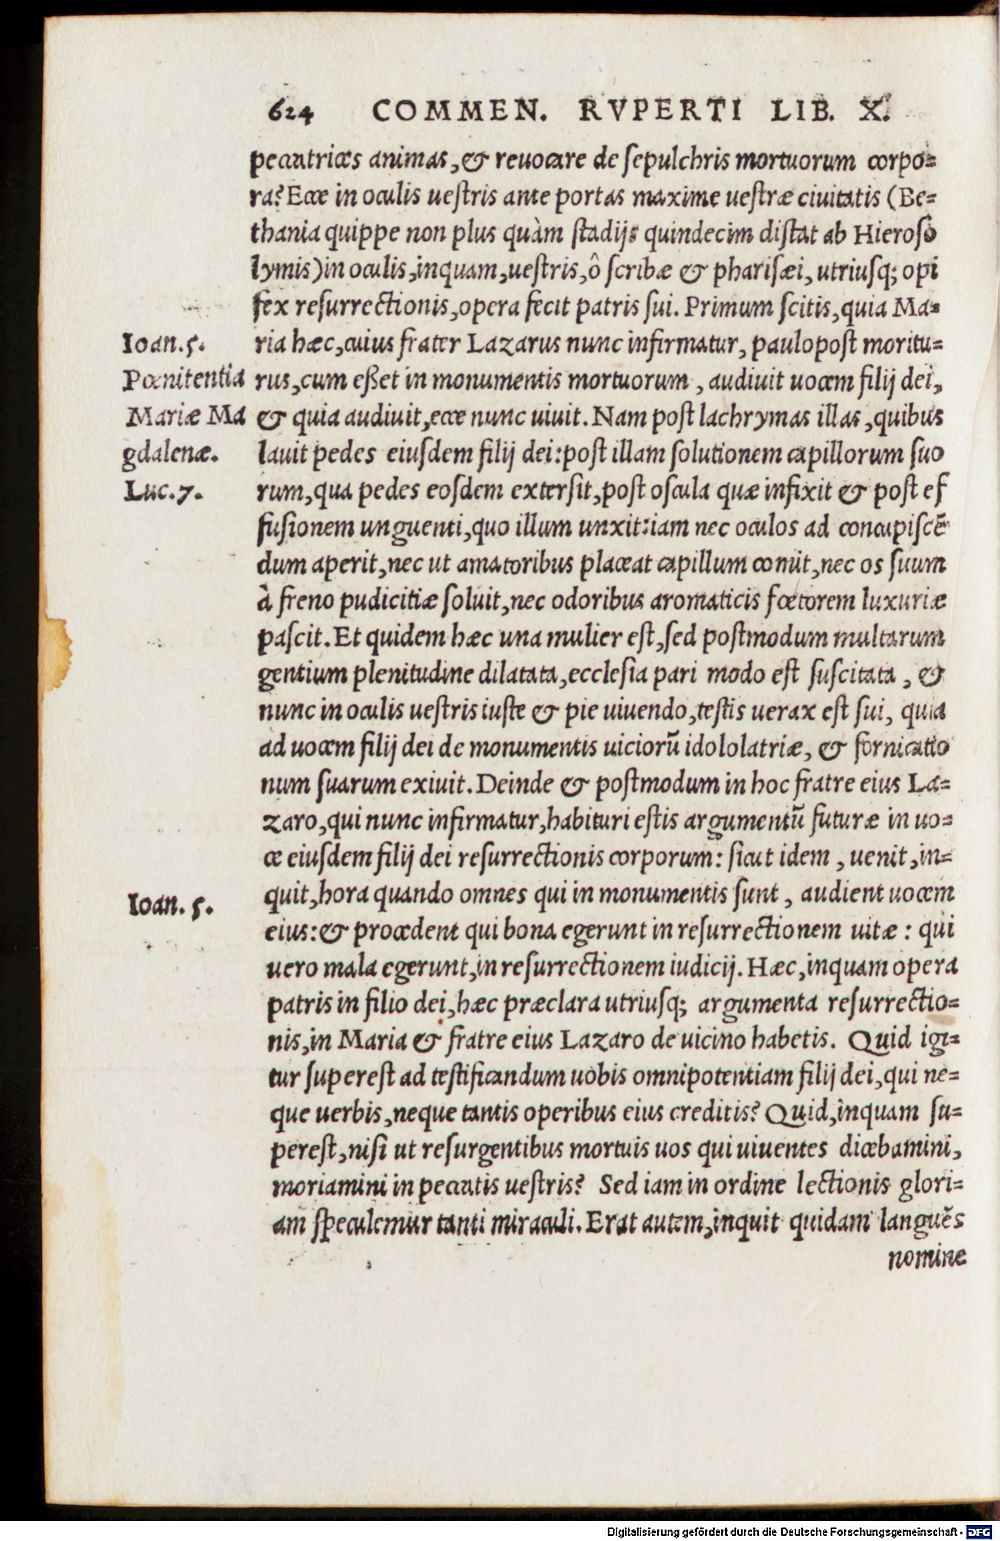 624 COMMEN. RVPERTI LIB. X.
peccatrices animas, & reuocare de ſepulchris mortuorum corpo=
ra? Ecce in oculis ueſtris ante portas maxime ueſtræ ciuitatis (Be=
thania quippe non plus quàm ſtadijs quindecim diſtat ab Hieroſo
lymis) in oculis, inquam, ueſtris, ô ſcribæ & phariſæi, utriuſq; opi
fex reſurrectionis, opera fecit patris ſui. Primum ſcitis, quia Ma=
Ioan. 5.
ria hæc, cuius frater Lazarus nunc infirmatur, paulopoſt moritu=
Pœnitentia
rus, cum eßet in monumentis mortuorum, audiuit uocem filij dei,
Mariæ Ma
& quia audiuit, ecce nunc uiuit. Nam poſt lachrymas illas, quibus
gdalenæ.
lauit pedes eiuſdem filij dei: poſt illam ſolutionem capillorum ſuo
Luc. 7.
rum, qua pedes eoſdem exterſit, poſt oſcula quæ infixit & poſt ef
fuſionem unguenti, quo illum unxit: iam nec oculos ad concupiſcẽ
dum aperit, nec ut amatoribus placeat capillum comit, nec os ſuum
à freno pudicitiæ ſoluit, nec odoribus aromaticis fœtorem luxuriæ
paſcit. Et quidem hæc una mulier eſt, ſed poſtmodum multarum
gentium plenitudine dilatata, eccleſia pari modo eſt ſuſcitata, &
nunc in oculis ueſtris iuſte & pie uiuendo, teſtis uerax eſt ſui, quia
ad uocem filij dei de monumentis uiciorũ idololatriæ, & fornicatio
num ſuarum exiuit. Deinde & poſtmodum in hoc fratre eius La=
zaro, qui nunc infirmatur, habituri eſtis argumentũ futuræ in uo=
ce eiuſdem filij dei reſurrectionis corporum: ſicut idem, uenit, in=
Ioan. 5.
quit, hora quando omnes qui in monumentis ſunt, audient uocem
eius: & procedent qui bona egerunt in reſurrectionem uitæ: qui
uero mala egerunt, in reſurrectionem iudicij. Hæc, inquam opera
patris in filio dei, hæc præclara utriuſq; argumenta reſurrectio=
nis, in Maria & fratre eius Lazaro de uicino habetis. Quid igi=
tur ſupereſt ad teſtificandum uobis omnipotentiam filij dei, qui ne=
que uerbis, neque tantis operibus eius creditis? Quid, inquam ſu=
pereſt, niſi ut reſurgentibus mortuis uos qui uiuentes dicebamini,
moriamini in peccatis ueſtris? Sed iam in ordine lectionis glori=
am ſpeculemur tanti miraculi. Erat autem, inquit quidam languẽs
nomine
Digitalisierung gefördert durch die Deutsche Forschungsgemeinschaft - DFG